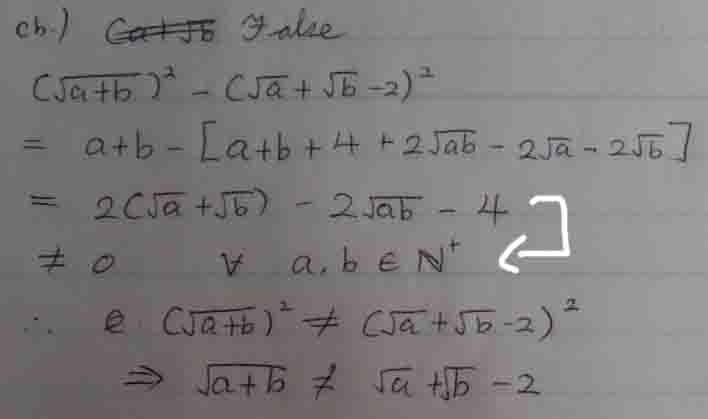 cb.) False
(√(a+b))² - (√a + √b - 2)²
= a+b - [a+b+4 + 2√ab - 2√a - 2√b]
= 2(√a + √b) - 2√ab - 4
≠ 0 ∀ a, b ∈ ℕ⁺
∴ (√(a+b))² ≠ (√a + √b - 2)²
⇒ √(a+b) ≠ √a + √b - 2